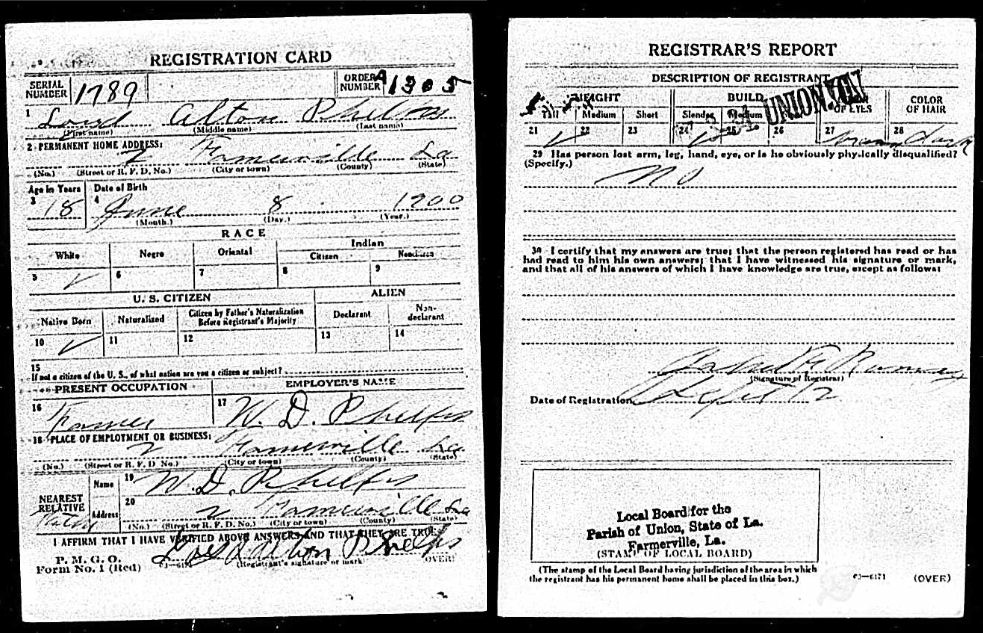 REGISTRATION CARD
SERIAL NUMBER 1789 ORDER NUMBER A1305
1 Loyd Alton Phelps
(First name) (Middle name) (Last name)
2 PERMANENT HOME ADDRESS:
2 Farmerville La
(No.) (Street or R. F. D. No.) (City or town) (County) (State)
Age in Years Date of Birth
3 18 4 June 8 1900
(Month.) (Day.) (Year.)
RACE
White Negro Oriental Indian
Citizen Noncitizen
5 ✓ 6 7 8 9
U. S. CITIZEN ALIEN
Native Born Naturalized Citizen by Father's Naturalization Before Registrant's Majority Declarant Non-declarant
10 ✓ 11 12 13 14
15
If not a citizen of the U. S., of what nation are you a citizen or subject?
PRESENT OCCUPATION EMPLOYER'S NAME
16 Farmer 17 W. D. Phelps
18 PLACE OF EMPLOYMENT OR BUSINESS:
2 Farmerville La
(No.) (Street or R. F. D No.) (City or town) (County) (State)
NEAREST RELATIVE Name 19 W. D. Phelps
Address 20 2 Farmerville La
(No.) (Street or R. F. D. No.) (City or town) (County) (State)
I AFFIRM THAT I HAVE VERIFIED ABOVE ANSWERS AND THAT THEY ARE TRUE
P. M. G. O.
Form No. 1 (Red) Alton Phelps
(Registrant's signature or mark) (OVER)
REGISTRAR'S REPORT
DESCRIPTION OF REGISTRANT
HEIGHT BUILD COLOR OF EYES COLOR OF HAIR
UNION
Tall Medium Short Slender Medium
21 ✓ 22 23 24 25 26 27 28 Dark
29 Has person lost arm, leg, hand, eye, or is he obviously physically disqualified?
(Specify.) No
30 I certify that my answers are true; that the person registered has read or has
had read to him his own answers; that I have witnessed his signature or mark,
and that all of his answers of which I have knowledge are true, except as follows:
(Signature of Registrar)
Date of Registration Sept 12
Local Board for the
Parish of Union, State of La.
Farmerville, La.
(STAMP OF LOCAL BOARD)
(The stamp of the Local Board having jurisdiction of the area in which
the registrant has his permanent home shall be placed in this box.)
03—6171 (OVER)